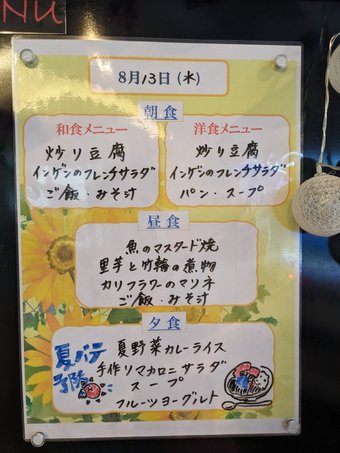 NU
8月13日(水)
朝食
和食メニュー
炒り豆腐
インゲンのフレンチサラダ
ご飯・みそ汁
洋食メニュー
炒り豆腐
インゲンのフレンチサラダ
パン・スープ
昼食
魚のマスタード焼
里芋と竹輪の煮物
カリフラワーのマリネ
ご飯・みそ汁
夕食
夏バテ
予防
夏野菜カレーライス
手作りマカロニサラダ
スープ
フルーツヨーグルト